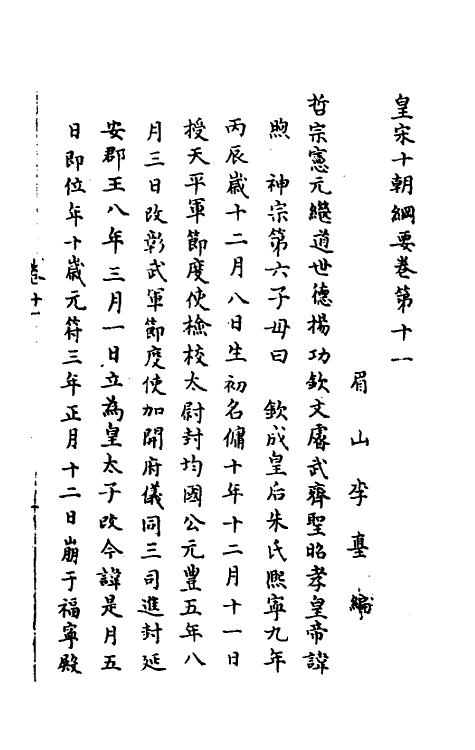 皇宋十朝綱要卷第十一
眉山李𡌴編
哲宗憲元繼道世德揚功欽文睿武齊聖昭孝皇帝諱
煦　神宗第六子母曰　欽成皇后朱氏熙寧九年
丙辰歲十二月八日生初名傭十年十二月十一日
授天平軍節度使檢校太尉封均國公元豐五年八
月三日改彰武軍節度使加開府儀同三司進封延
安郡王八年三月一日立為皇太子改今諱是月五
日即位年十歲元符三年正月十二日崩于福寧殿
卷十一